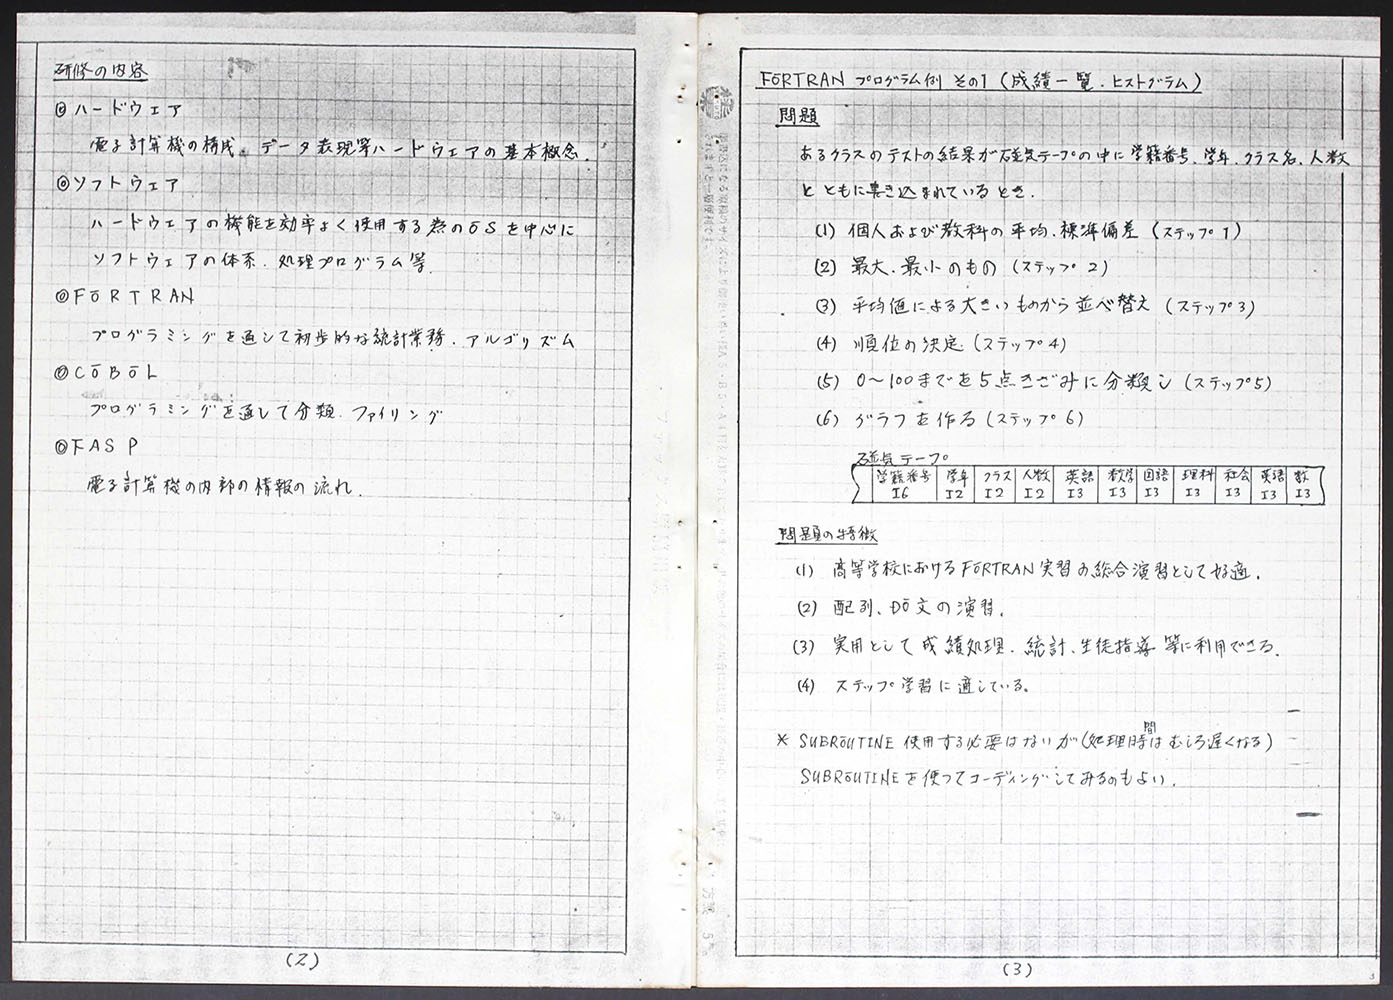 研修の内容
◎ハードウェア
電子計算機の構成、データ表現等ハードウェアの基本概念.
◎ソフトウェア
ハードウェアの機能を効率よく使用する為のŌSを中心に
ソフトウェアの体系、処理プログラム等
◎FŌRTRAN
プログラミングを通して初歩的な統計業務、アルゴリズム
◎CŌBŌL
プログラミングを通して分類、ファイリング
◎FASP
電子計算機の内部の情報の流れ.
(2)
FŌRTRAN プログラム例 その1 (成績一覧・ヒストグラム)
問題
あるクラスのテストの結果が磁気テープの中に学籍番号、学年、クラス名、人数
とともに書き込まれているとき.
(1) 個人および教科の平均、標準偏差 (ステップ1)
(2) 最大、最小のもの (ステップ2)
(3) 平均値による大きいものから並べ替え (ステップ3)
(4) 順位の決定 (ステップ4)
(5) 0〜100までを5点きざみに分類し (ステップ5)
(6) グラフを作る (ステップ6)
磁気テープ
学籍番号 学年 クラス 人数 英語 数学 国語 理科 社会 英語 数
I6 I2 I2 I2 I3 I3 I3 I3 I3 I3 I3
問題の特徴
(1) 高等学校におけるFŌRTRAN実習の総合演習として好適.
(2) 配列、DŌ文の演習.
(3) 実用として成績処理、統計、生徒指導等に利用できる.
(4) ステップ学習に適している。
* SUBRŌUTINE 使用する必要はないが(処理時間はむしろ遅くなる)
SUBRŌUTINEを使ってコーディングしてみるのもよい.
(3)